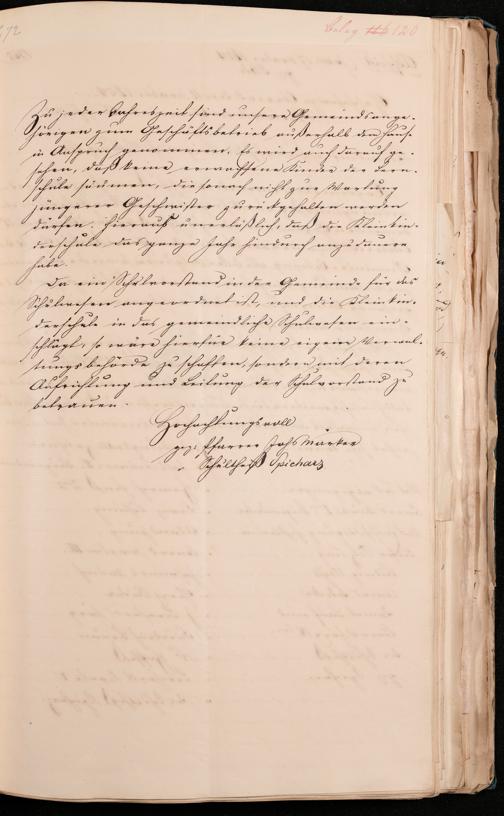 672
Beleg 120
Zu jeder Jahreszeit sind unsere Gemeindsange-
hörigen zum Geschäftsbetrieb außerhalb des Haus.
in Anspruch genommen. Es wird auf darauf ge-
sehen, daß keine erwachsene Kinder der dern.
schule säumen, die sonach nicht zur Wartung
jüngerer Geschwister zurückgehalten werden
dürfen. Hieraus unerläßlich, daß die Kleinkin-
derschule das ganze Jahr hindurch anzudauern
habe.
Da ein Schulvorstand in der Gemeinde für das
Schulwesen angeordnet ist, und die Kleinkin-
derschule in das gemeindliche Schulwesen ein-
schlägt, so wäre hierfür keine eigene Verwal-
tungsbehörde zu schaffen, sondern mit deren
Aufrichtung und Leitung der Schulvorstand zu
betrauen.
Hochachtungsvoll
gez. Pfarrer Johs Marker
" Schultheiß Spicharz